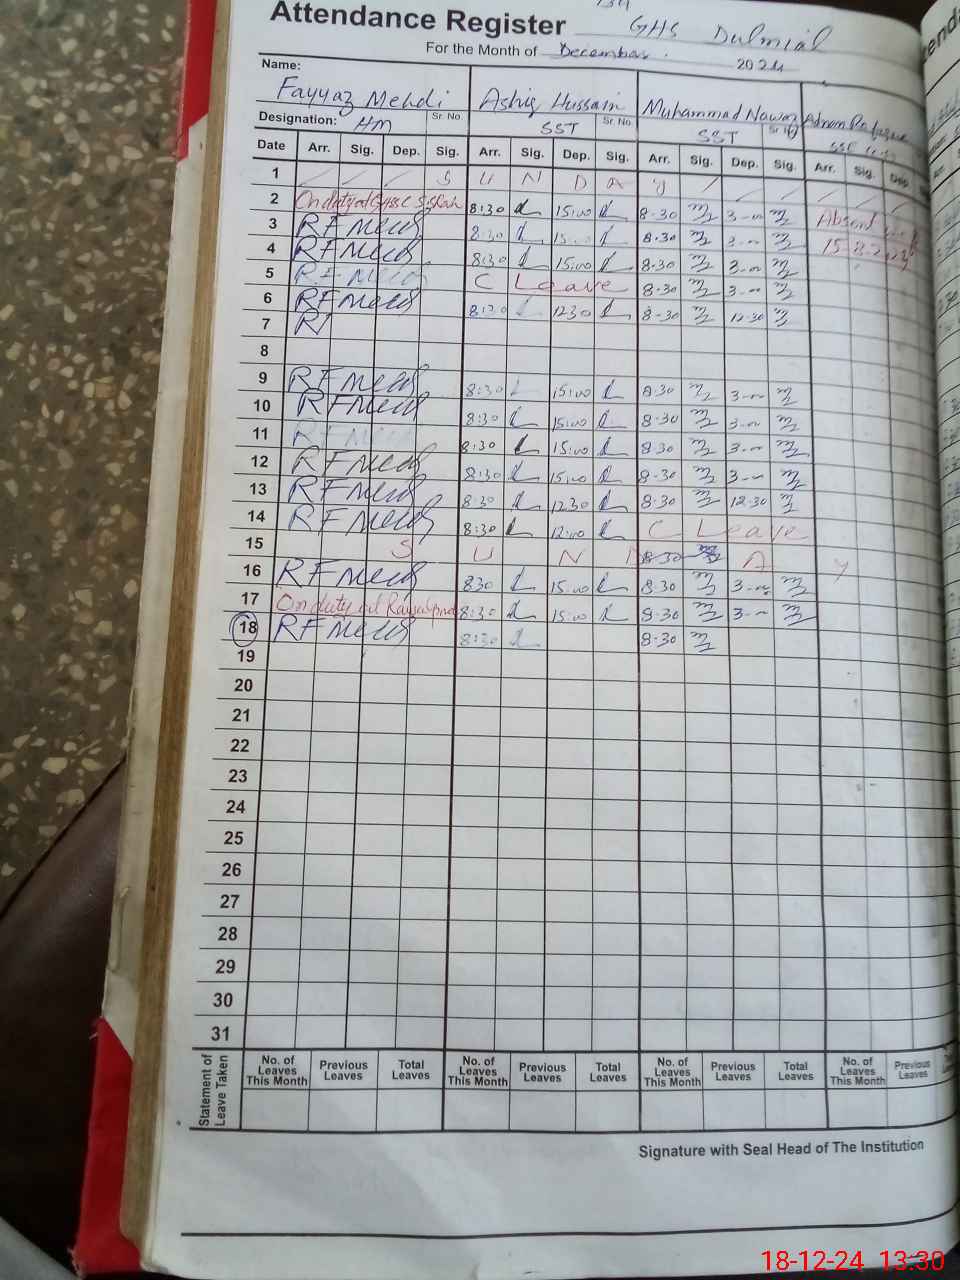 Attendance Register GHS Dulmial
For the Month of December 2024
Name: Fayyaz Mehdi Ashiq Hussain Muhammad Nawaz Adnan
Designation: HM Sr. No SST Sr. No SST Sr. No SSE
Date Arr. Sig. Dep. Sig. Arr. Sig. Dep. Sig. Arr. Sig. Dep. Sig. Arr. Sig. Dep
1 S U N D A Y
2 On duty at 8:30 15:00 8-30 3-00 Absent
3 8:30 15:00 8-30 3-00 15-8-2023
4 8:30 15:00 8-30 3-00
5 C Leave 8-30 3-00
6 8:30 1230 8-30 12-30
7
8
9 8:30 15:00 8-30 3-00
10 8:30 15:00 8-30 3-00
11 8:30 15:00 8-30 3-00
12 8:30 15:00 8-30 3-00
13 8:30 1230 8-30 12-30
14 8:30 12:00 C Leave
15 S U N D 8-30 A Y
16 830 15:00 8-30 3-00
17 On duty at Rawalpindi 8:30 15:00 8-30 3-00
18 8:30 8-30
19
20
21
22
23
24
25
26
27
28
29
30
31
Statement of Leave Taken
No. of Leaves This Month Previous Leaves Total Leaves No. of Leaves This Month Previous Leaves Total Leaves No. of Leaves This Month Previous Leaves Total Leaves No. of Leaves This Month Previous Leaves
Signature with Seal Head of The Institution
18-12-24 13:30